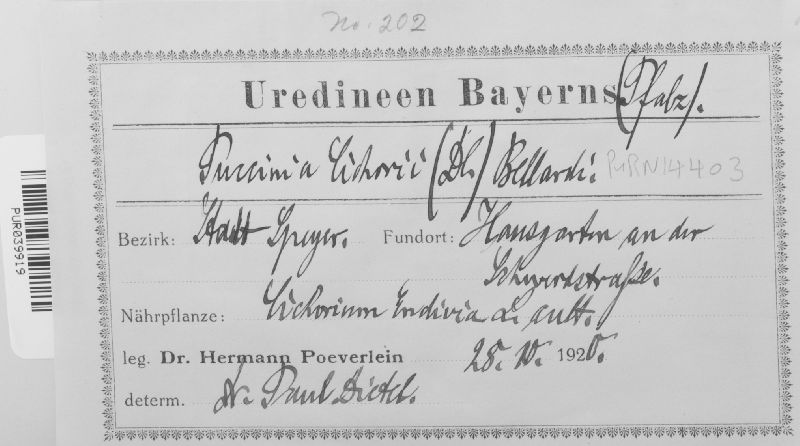 No. 202
Uredineen Bayerns (Pfalz).
Puccinia Cichorii (Dl.) Bellardi. PURN14403
Bezirk: Stadt Speyer. Fundort: Hausgarten an der
Schwerdstraße.
Nährpflanze: Cichorium Endivia L. cult.
leg. Dr. Hermann Poeverlein 25. IV. 1920.
determ. Dr. Paul Dietel.
PUR039919